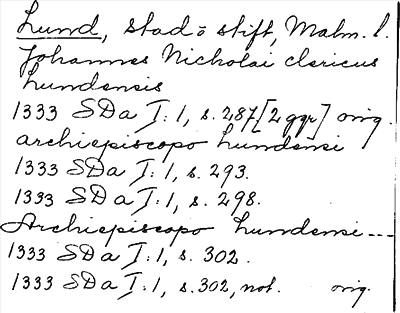 Lund, stad o stift, Malm. l.
Johannes Nicholai clericus
Lundensis
1333 SDa I: 1, s. 287 [2 ggr] orig.
archiepiscopo Lundensi
1333 SDa I: 1, s. 293.
1333 SDa I: 1, s. 298.
Archiepiscopo Lundensi ---
1333 SDa I: 1, s. 302.
1333 SDa I: 1, s. 302, not. orig.